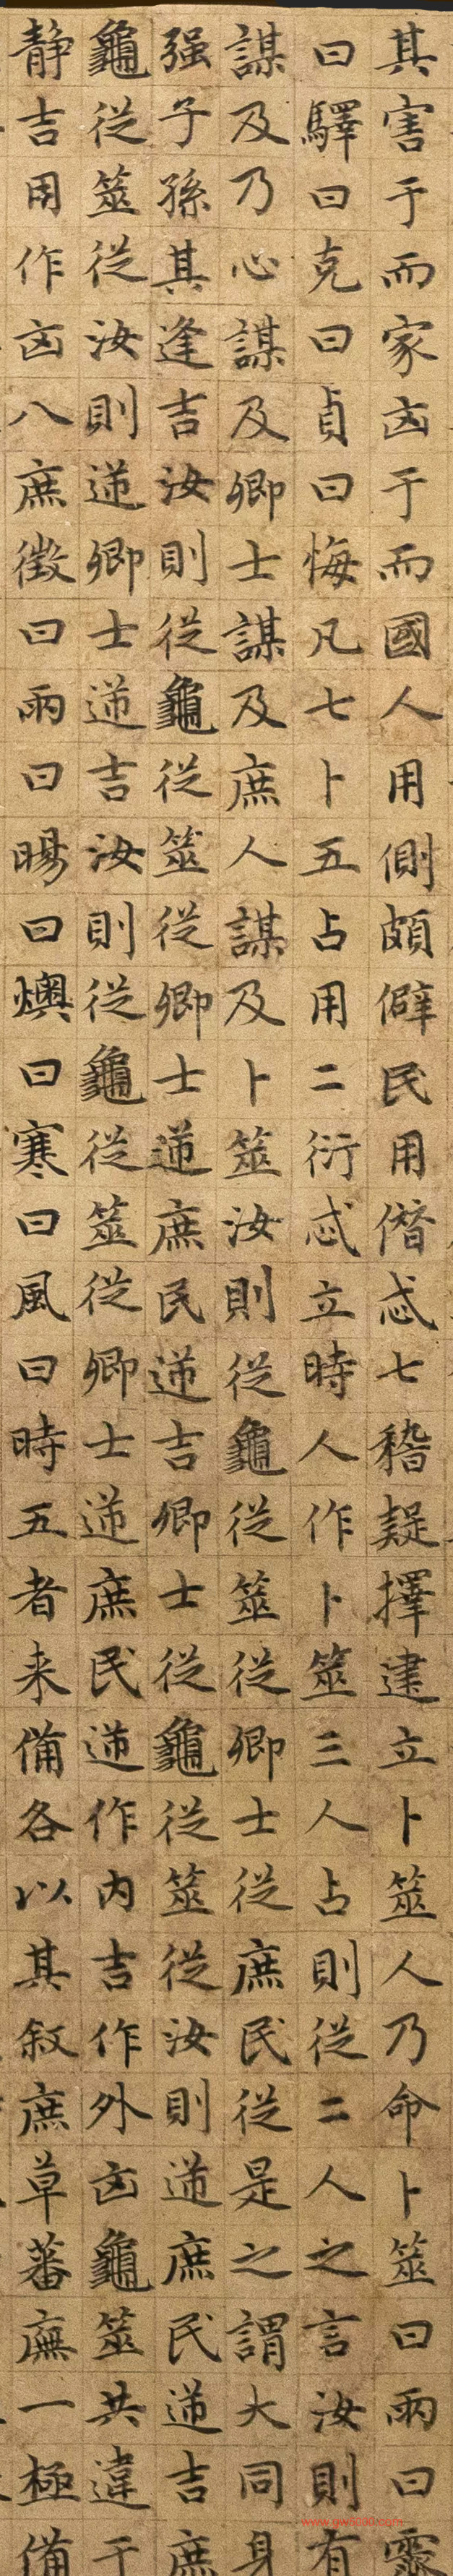 其害于而家凶于而國人用側頗僻民用僭忒七稽疑擇建立卜筮人乃命卜筮曰雨曰霽
曰驛曰克曰貞曰悔凡七卜五占用二衍忒立時人作卜筮三人占則從二人之言汝則有
謀及乃心謀及卿士謀及庶人謀及卜筮汝則從龜從筮從卿士從庶民從是之謂大同身
强子孫其逢吉汝則從龜從筮從卿士逆庶民逆吉卿士從龜從筮從汝則逆庶民逆吉庶
龜從筮從汝則逆卿士逆吉汝則從龜從筮從卿士逆庶民逆作内吉作外凶龜筮共違于
静吉用作凶八庶徵曰雨曰暘曰燠曰寒曰風曰時五者来備各以其叙庶草蕃廡一極備